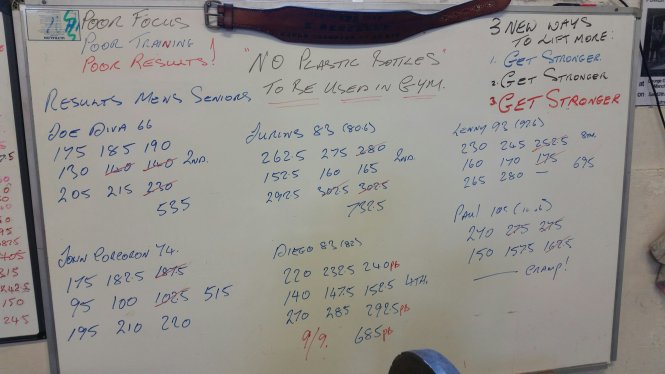 Poor Focus
Poor Training
Poor Results!
"No Plastic Bottles"
To Be Used in Gym.
3 New Ways
To Lift More:
1. Get Stronger.
2. Get Stronger
3 Get Stronger
Results Mens Seniors
Joe Diva 66
175 185 190
130 140 140 2nd.
205 215 230
535
Jurins 83 (80.6)
262.5 275 280
152.5 160 165 2nd
292.5 302.5 302.5
732.5
Lenny 93 (92.6)
230 245 252.5
160 170 175 695
265 280 —
John Corcoron 74.
175 182.5 187.5
95 100 102.5 515
195 210 220
Diego 83 (82)
220 232.5 240 pb
140 147.5 152.5 4th.
270 285 292.5 pb
9/9. 685 pb
Paul 105
270 275 275
150 157.5 162.5
cramp!